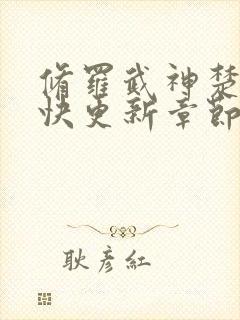 脩羅武神楚
快更新章節
耿彥紅